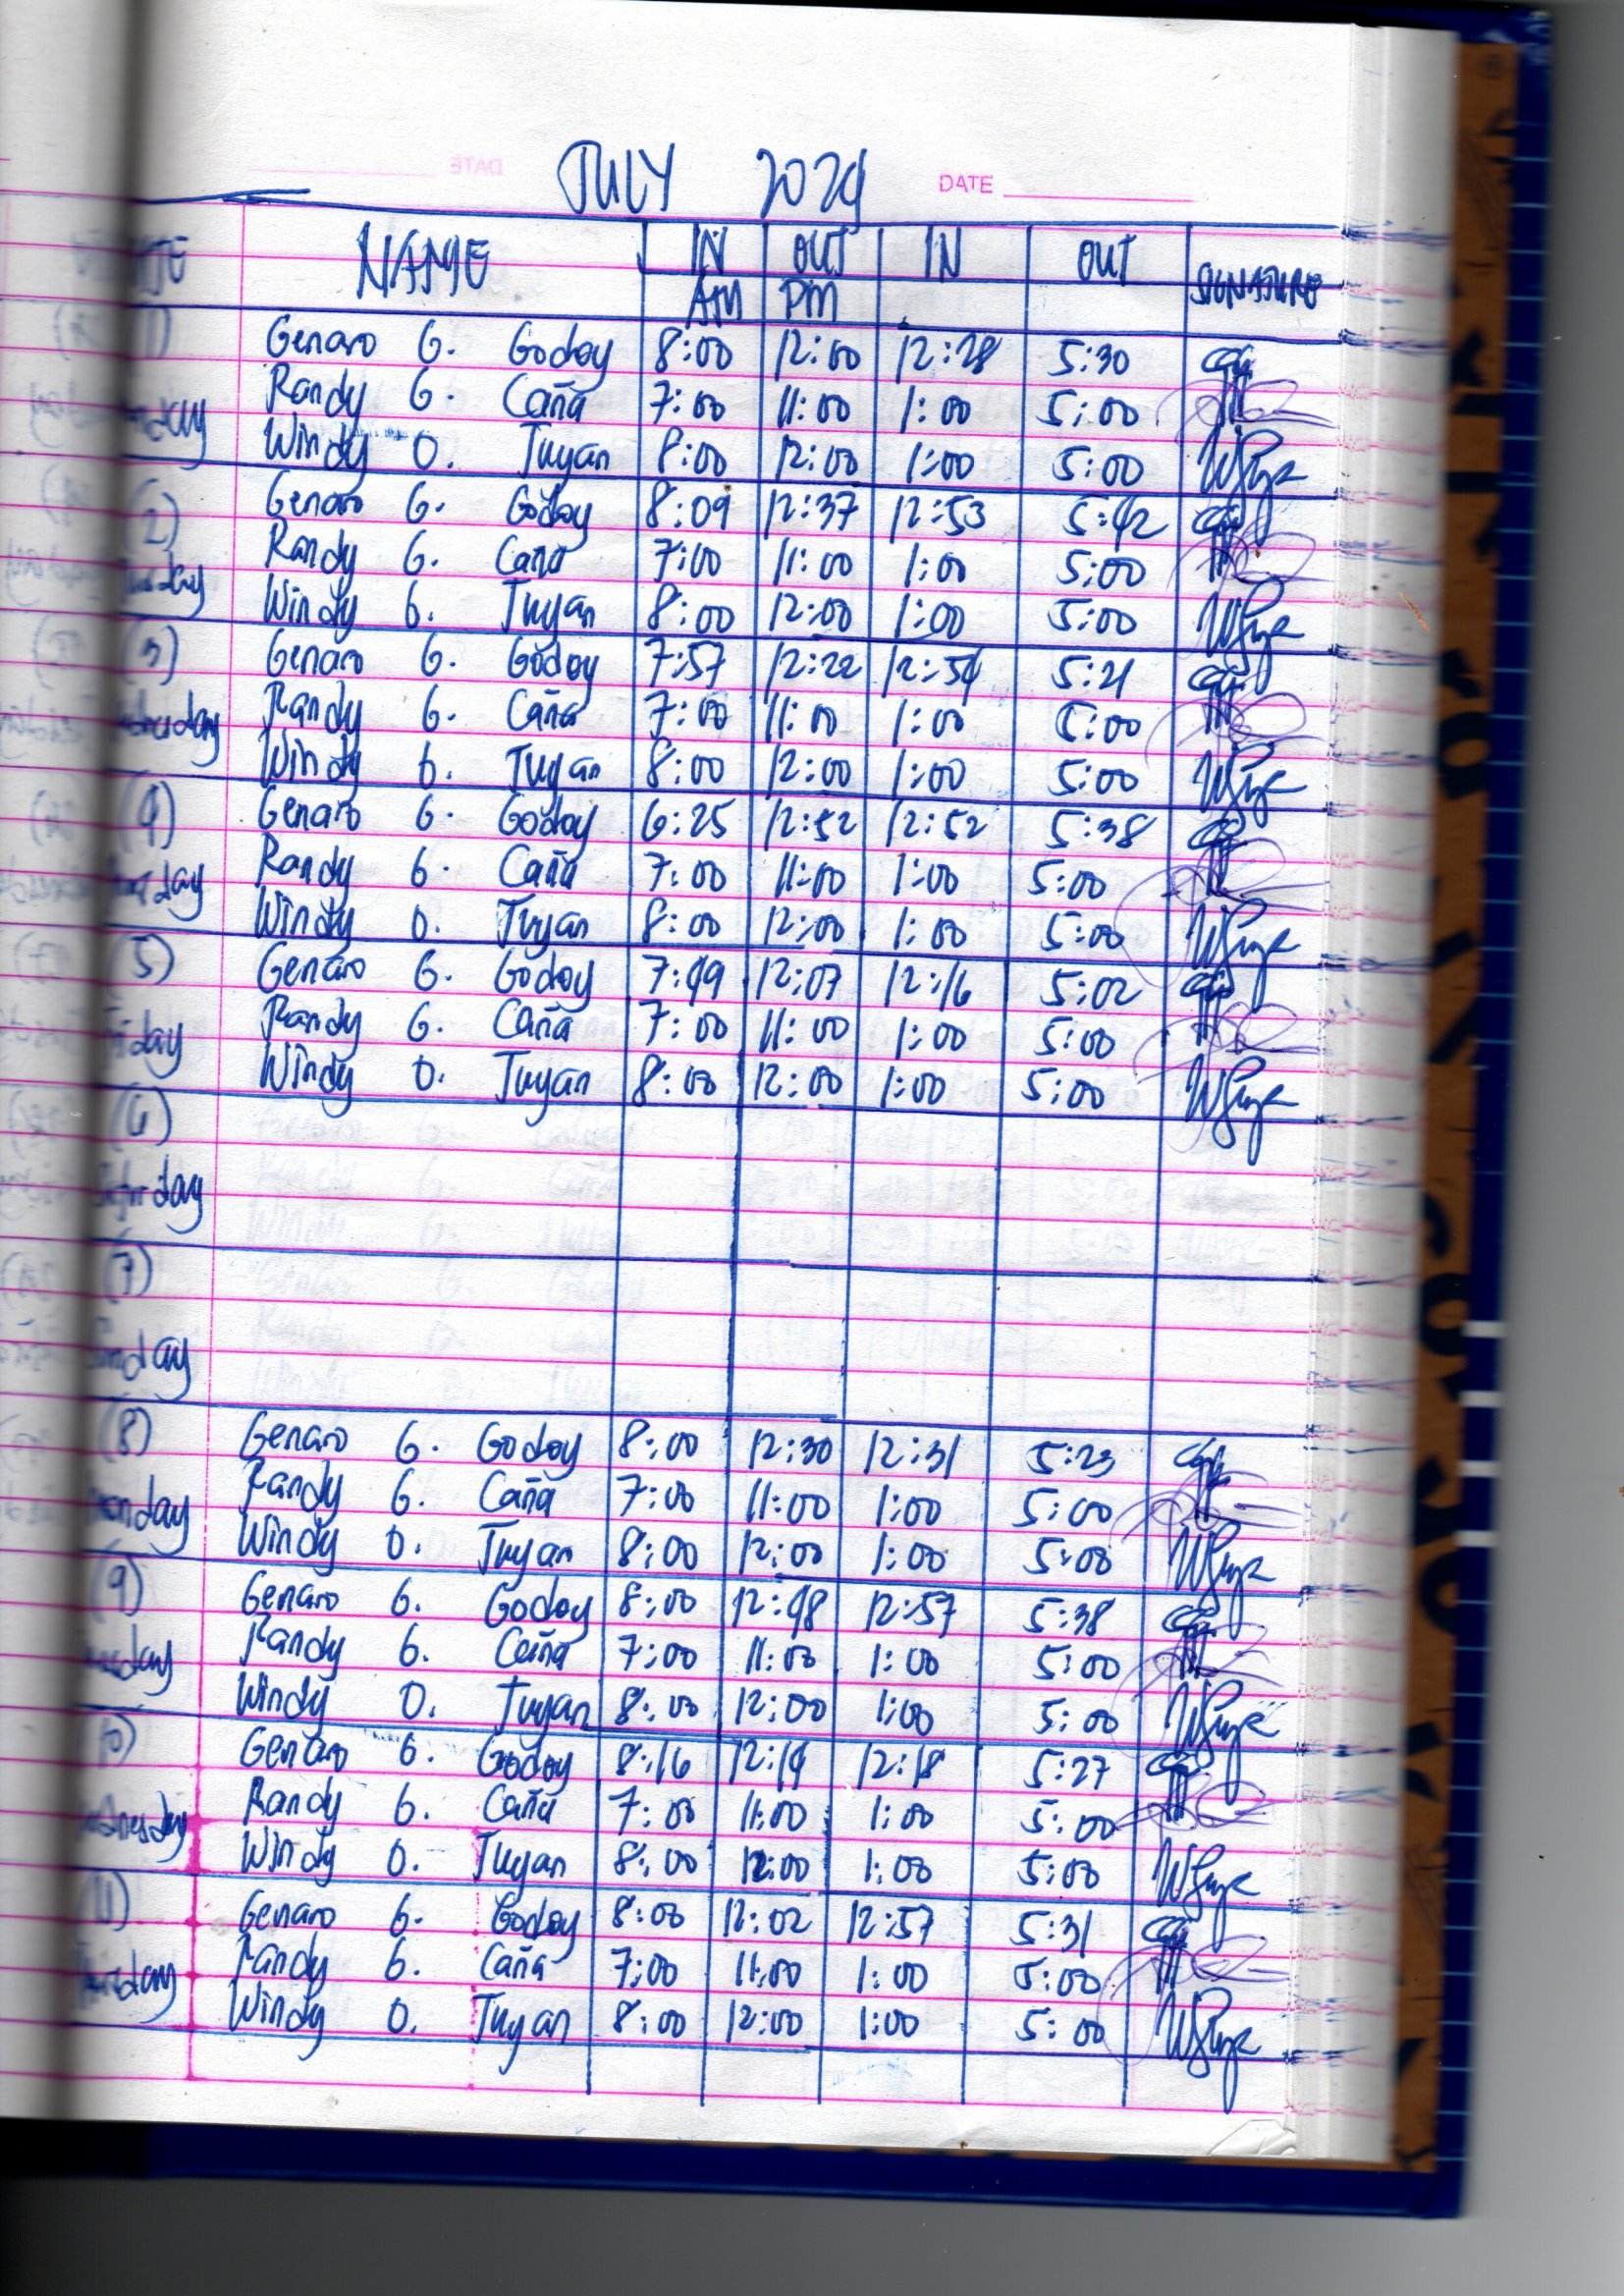 DATE
JULY 2024 DATE
NAME IN OUT IN OUT SIGNATURE
AM PM
(1) Genaro G. Godoy 8:00 12:00 12:28 5:30
Randy G. Caña 7:00 11:00 1:00 5:00
Windy O. Tuyan 8:00 12:00 1:00 5:00
(2) Genaro G. Godoy 8:09 12:37 12:53 5:42
Randy G. Caña 7:00 11:00 1:00 5:00
Windy O. Tuyan 8:00 12:00 1:00 5:00
(3) Genaro G. Godoy 7:57 12:22 12:54 5:21
Randy G. Caña 7:00 11:00 1:00 5:00
Windy O. Tuyan 8:00 12:00 1:00 5:00
(4) Genaro G. Godoy 6:25 12:52 12:52 5:38
Randy G. Caña 7:00 11:00 1:00 5:00
Windy O. Tuyan 8:00 12:00 1:00 5:00
(5) Genaro G. Godoy 7:49 12:07 12:16 5:02
Friday Randy G. Caña 7:00 11:00 1:00 5:00
Windy O. Tuyan 8:00 12:00 1:00 5:00
(6)
Saturday
(7)
Sunday
(8) Genaro G. Godoy 8:00 12:30 12:31 5:23
Monday Randy G. Caña 7:00 11:00 1:00 5:00
Windy O. Tuyan 8:00 12:00 1:00 5:00
(9) Genaro G. Godoy 8:00 12:48 12:57 5:38
Randy G. Caña 7:00 11:00 1:00 5:00
Windy O. Tuyan 8:00 12:00 1:00 5:00
Genaro G. Godoy 8:16 12:14 12:18 5:27
Randy G. Caña 7:00 11:00 1:00 5:00
Windy O. Tuyan 8:00 12:00 1:00 5:00
(11) Genaro G. Godoy 8:00 12:02 12:57 5:31
Randy G. Caña 7:00 11:00 1:00 5:00
Windy O. Tuyan 8:00 12:00 1:00 5:00